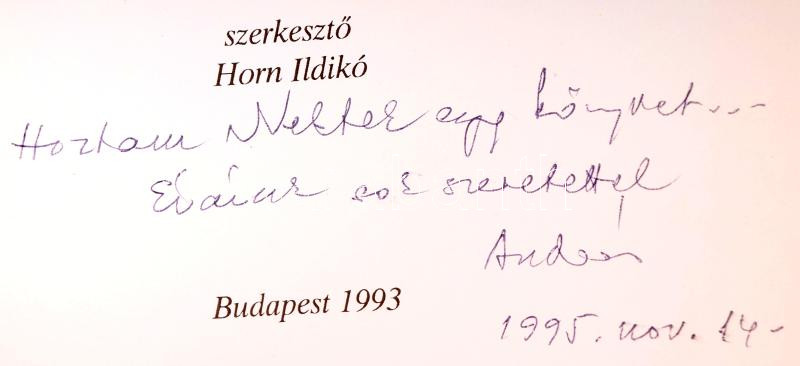 szerkesztő
Horn Ildikó
Hoztam Nektek egy könyvet...-
sok szeretettel
Budapest 1993
1995. nov. 14-